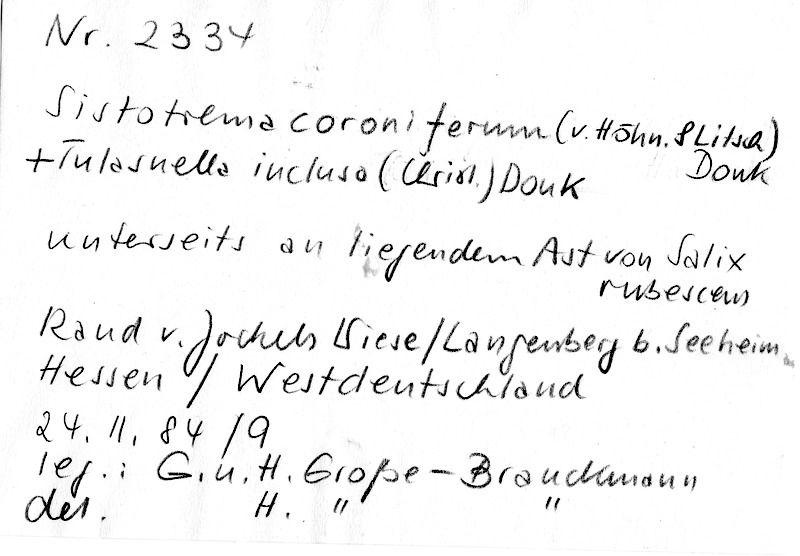 Nr. 2334
Sistotrema coroniferum (v. Höhn. & Litsch)
Donk
+ Tulasnella inclusa (Christ.) Donk
unterseits an liegendem Ast von Salix
rubescens
Rand v. Jockels Wiese / Langenberg b. Seeheim
Hessen / Westdeutschland
24. 11. 84 / 9
leg.: G. u. H. Große-Brauckmann
det. H. " "